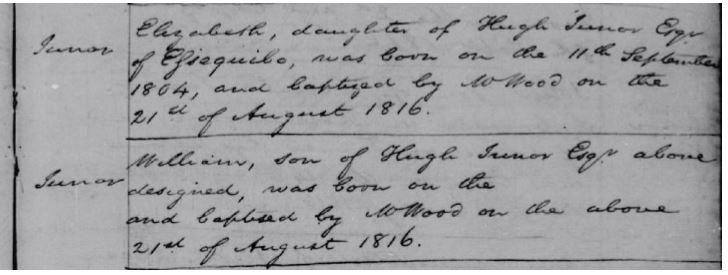 Junor
Elizabeth, daughter of Hugh Junor Esqr
of Essequibo, was born on the 11th September
1804, and baptized by Mr Wood on the
21st of August 1816.
Junor
William, son of Hugh Junor Esqr above
designed, was born on the
and baptized by Mr Wood on the above
21st of August 1816.